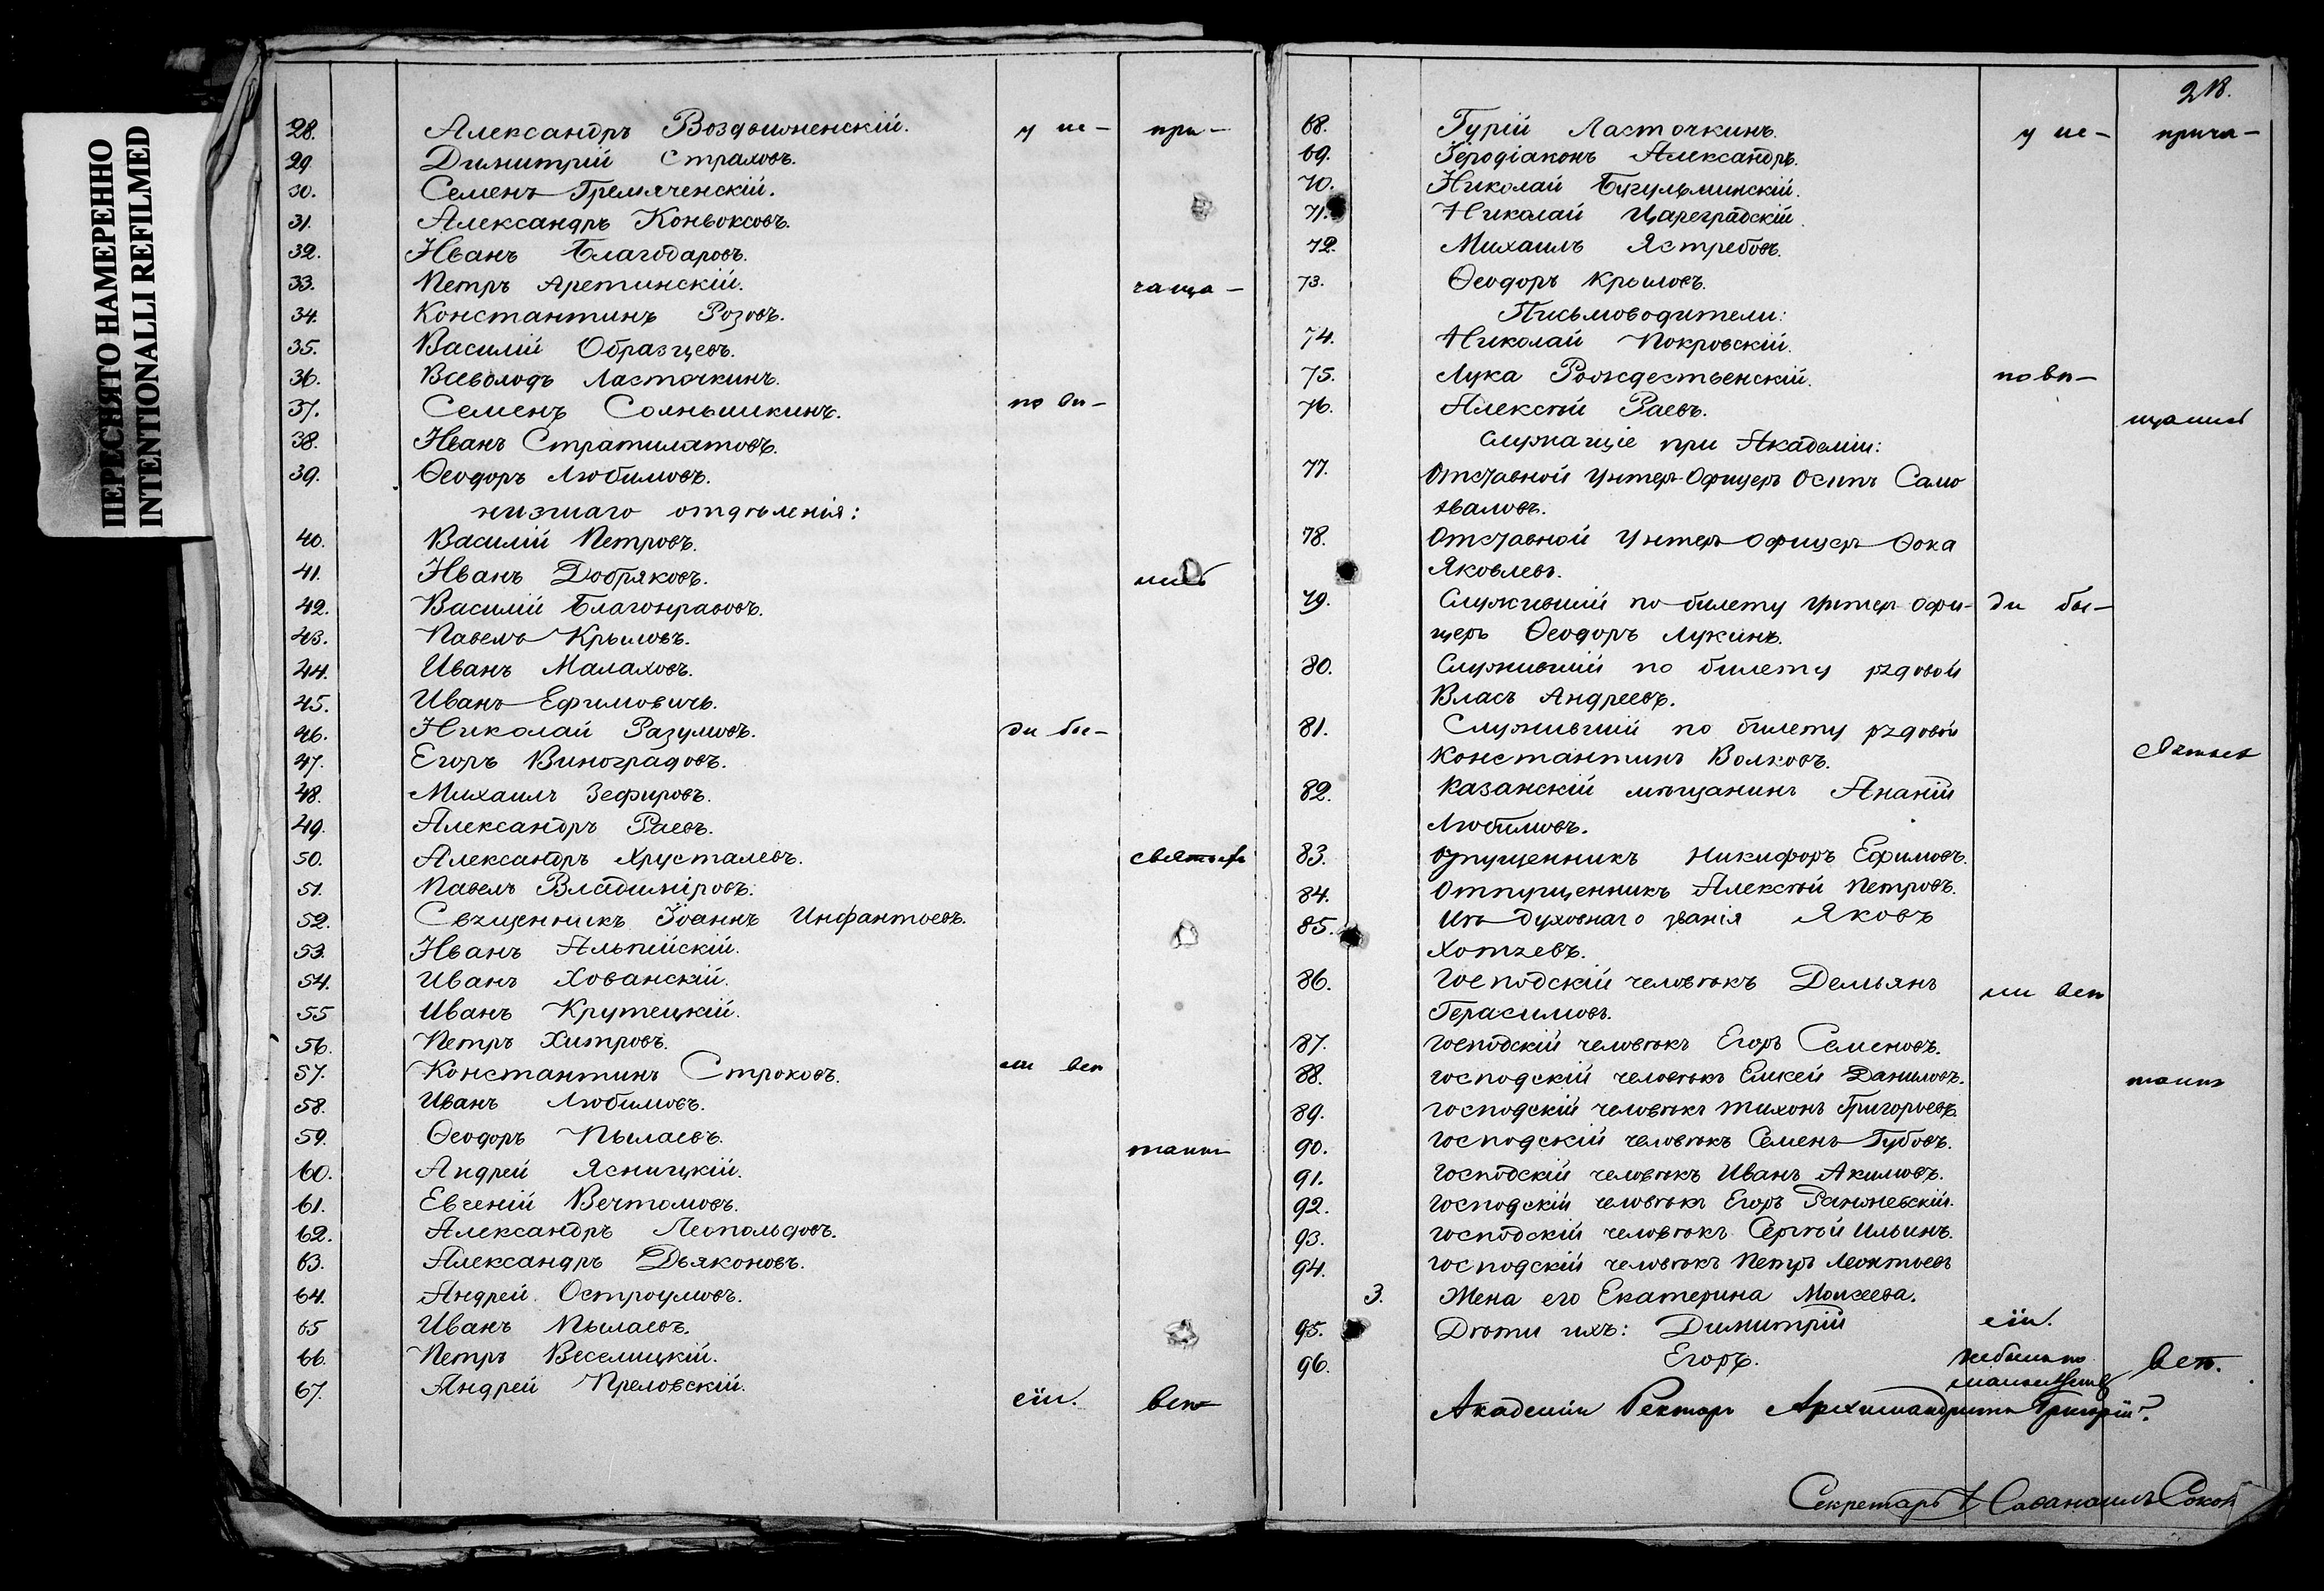 ПЕРЕСНЯТО НАМЕРЕННО
INTENTIONALLI REFILMED
28. Александръ Воздвиженскій. у ис- при-
29. Димитрій Страховъ.
30. Семенъ Гремяченскій.
31. Александръ
32. Иванъ Благодаровъ.
33. Петръ Аретинскій. чаща-
34. Константинъ Розовъ.
35. Василій Образцевъ.
36. Всеволодъ Ласточкинъ.
37. Семенъ Солнышкинъ. по ви-
38. Иванъ Стратилатовъ.
39. Ѳеодоръ Любимовъ.
низшаго отдѣленія:
40. Василій Петровъ.
41. Иванъ Добряковъ.
42. Василій Благонравовъ.
43. Павелъ Крыловъ.
44. Иванъ Малаховъ.
45. Иванъ Ефимовичъ.
46. Николай Разумовъ. ди бы-
47. Егоръ Виноградовъ.
48. Михаилъ Зефировъ.
49. Александръ Раевъ.
50. Александръ Хрусталевъ. святыхъ
51. Павелъ Владиміровъ.
52. Священникъ Іоаннъ Инфантьевъ.
53. Иванъ Альпійскій.
54. Иванъ Хованскій.
55 Иванъ Крутецкій.
56. Петръ Хитровъ.
57. Константинъ Строковъ. ли всѣ
58. Иванъ Любимовъ.
59. Ѳеодоръ Пылаевъ. таинъ
60. Андрей Ясницкій.
61. Евгеній Вечтомовъ.
62. Александръ Леопольдовъ.
63. Александръ Дьяконовъ.
64. Андрей Остроумовъ.
65 Иванъ Пылаевъ.
66. Петръ Веселицкій.
67. Андрей Преловскій. сіи. всѣ
218.
68. Гурій Ласточкинъ. у ис- прича-
69. Іеродіаконъ Александръ.
70. Николай Бугульминскій.
71. Николай Цареградскій.
72. Михаилъ Ястребовъ.
73. Ѳеодоръ Крыловъ.
Письмоводители:
74. Николай Покровскій.
75. Лука Рождественскій. пови-
76. Алексѣй Раевъ. щались
Служащіе при Академіи:
77. Отставной Унтеръ Офицеръ Осипъ Само
хваловъ.
78. Отставной Унтеръ Офицеръ Ѳока
Яковлевъ.
79. Служившій по билету Унтеръ Офи- ди бы-
церъ Ѳеодоръ Лукинъ.
80. Служившій по билету рядовой
Власъ Андреевъ.
81. Служившій по билету рядовой
Константинъ Волковъ. Святыхъ
82. Казанскій мѣщанинъ Ананій
Любимовъ.
83. Отпущенникъ Никифоръ Ефимовъ.
84. Отпущенникъ Алексѣй Петровъ.
85. Изъ духовнаго званія Яковъ
Хотяевъ.
86. Господскій человѣкъ Демьянъ ли всѣ
Герасимовъ.
87. Господскій человѣкъ Егоръ Семеновъ.
88. Господскій человѣкъ Елисей Даниловъ. таинъ
89. Господскій человѣкъ Тихонъ Григорьевъ.
90. Господскій человѣкъ Семенъ Губовъ.
91. Господскій человѣкъ Иванъ Акимовъ.
92. Господскій человѣкъ Егоръ
93. Господскій человѣкъ Сергѣй Ильинъ.
94. Господскій человѣкъ Петръ Леонтьевъ
3. Жена его Екатерина Моисеева.
95. Дѣти ихъ: Димитрій сіи.
96. Егоръ. небылъ по всѣ.
малолѣтств
Академіи Ректоръ Архимандритъ Григорій.
Секретарь